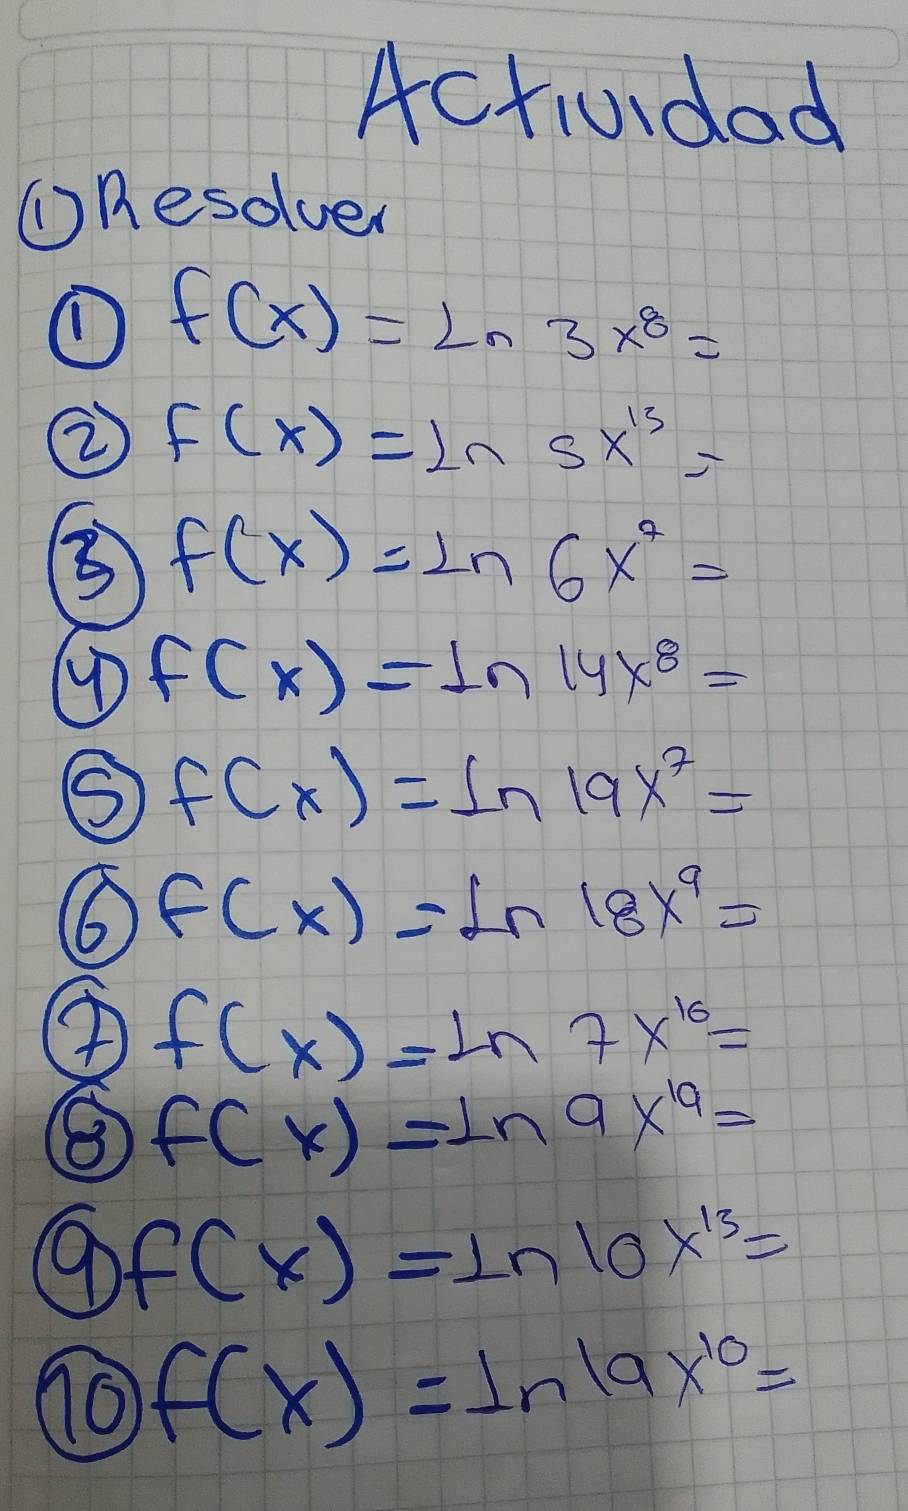 Actividad
① Resolver
① f(x) = Ln 3x⁸ =
② f(x) = Ln 5x¹³ =
③ f(x) = Ln 6x⁷ =
④ f(x) = Ln 14x⁸ =
⑤ f(x) = Ln 19x⁷ =
⑥ f(x) = Ln 18x⁹ =
⑦ f(x) = Ln 7x¹⁶ =
⑧ f(x) = Ln 9x¹⁹ =
⑨ f(x) = Ln 10x¹³ =
⑩ f(x) = Ln 19x¹⁰ =